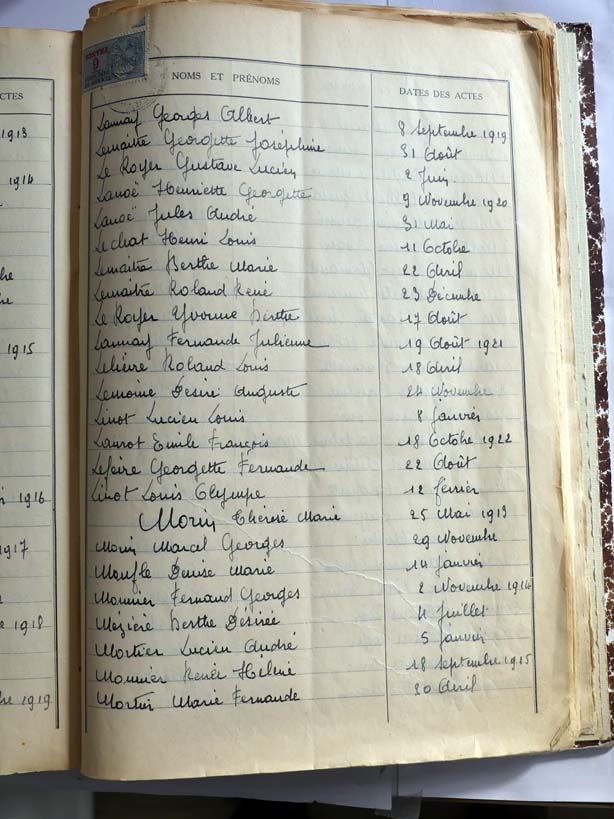 CTES
1913
1914
1915
1916
1917
1918
1919
NOMS ET PRÉNOMS DATES DES ACTES
Launay Georges Albert 8 Septembre 1919
Lemaitre Georgette Joséphine 31 Août
Le Royer Gustave Lucien 2 Juin
Lanoë Henriette Georgette 9 Novembre 1920
Lanoë Jules André 31 Mai
Lechat Henri Louis 11 Octobre
Lemaitre Berthe Marie 22 Avril
Lemaitre Roland René 23 Décembre
Le Royer Yvonne Berthe 17 Août
Launay Fernande Julienne 19 Août 1921
Lelièvre Roland Louis 18 Avril
Lemoine Désiré Auguste 24 Novembre
Linot Lucien Louis 8 janvier
Emile François 18 Octobre 1922
Georgette Fernande 22 Août
Linot Louis Olympe 12 février
Morin Thérèse Marie 25 Mai 1913
Morin Marcel Georges 29 Novembre
Moufle Denise Marie 14 janvier
Mounier Fernand Georges 2 Novembre 1914
Mézière Berthe Désirée 4 Juillet
Mortier Lucien André 5 janvier
Mounier Renée Hélène 18 Septembre 1915
Marie Fernande 20 Avril